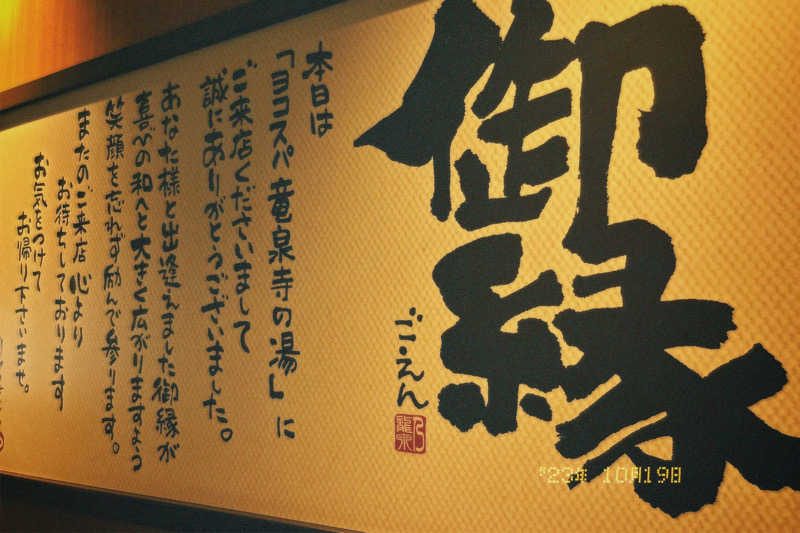 御縁
ご・えん
乃
龍泉
本日は
「ヨコスパ竜泉寺の湯」に
ご来店くださいまして
誠にありがとうございました。
あなた様と出逢えました御縁が
喜びの和へと大きく広がりますよう
笑顔を忘れず励んで参ります。
またのご来店 心より
お待ちしております
お気をつけて
お帰り下さいませ。
'23年 10月19日